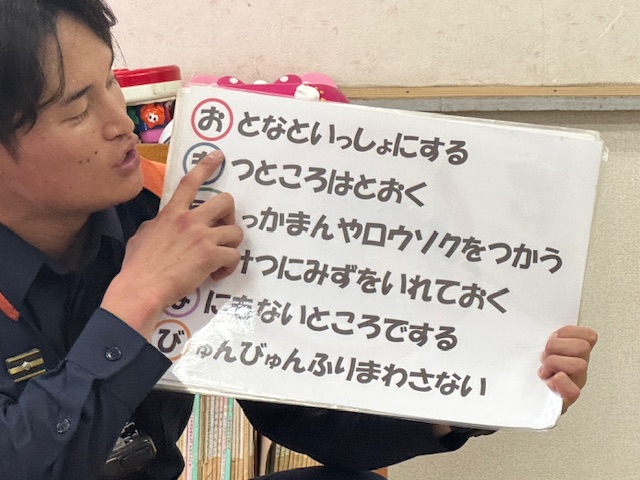 おとなといっしょにする
もつところはとおく
っかまんやロウソクをつかう
けつにみずをいれておく
なにもないところでする
びゅんびゅんふりまわさない